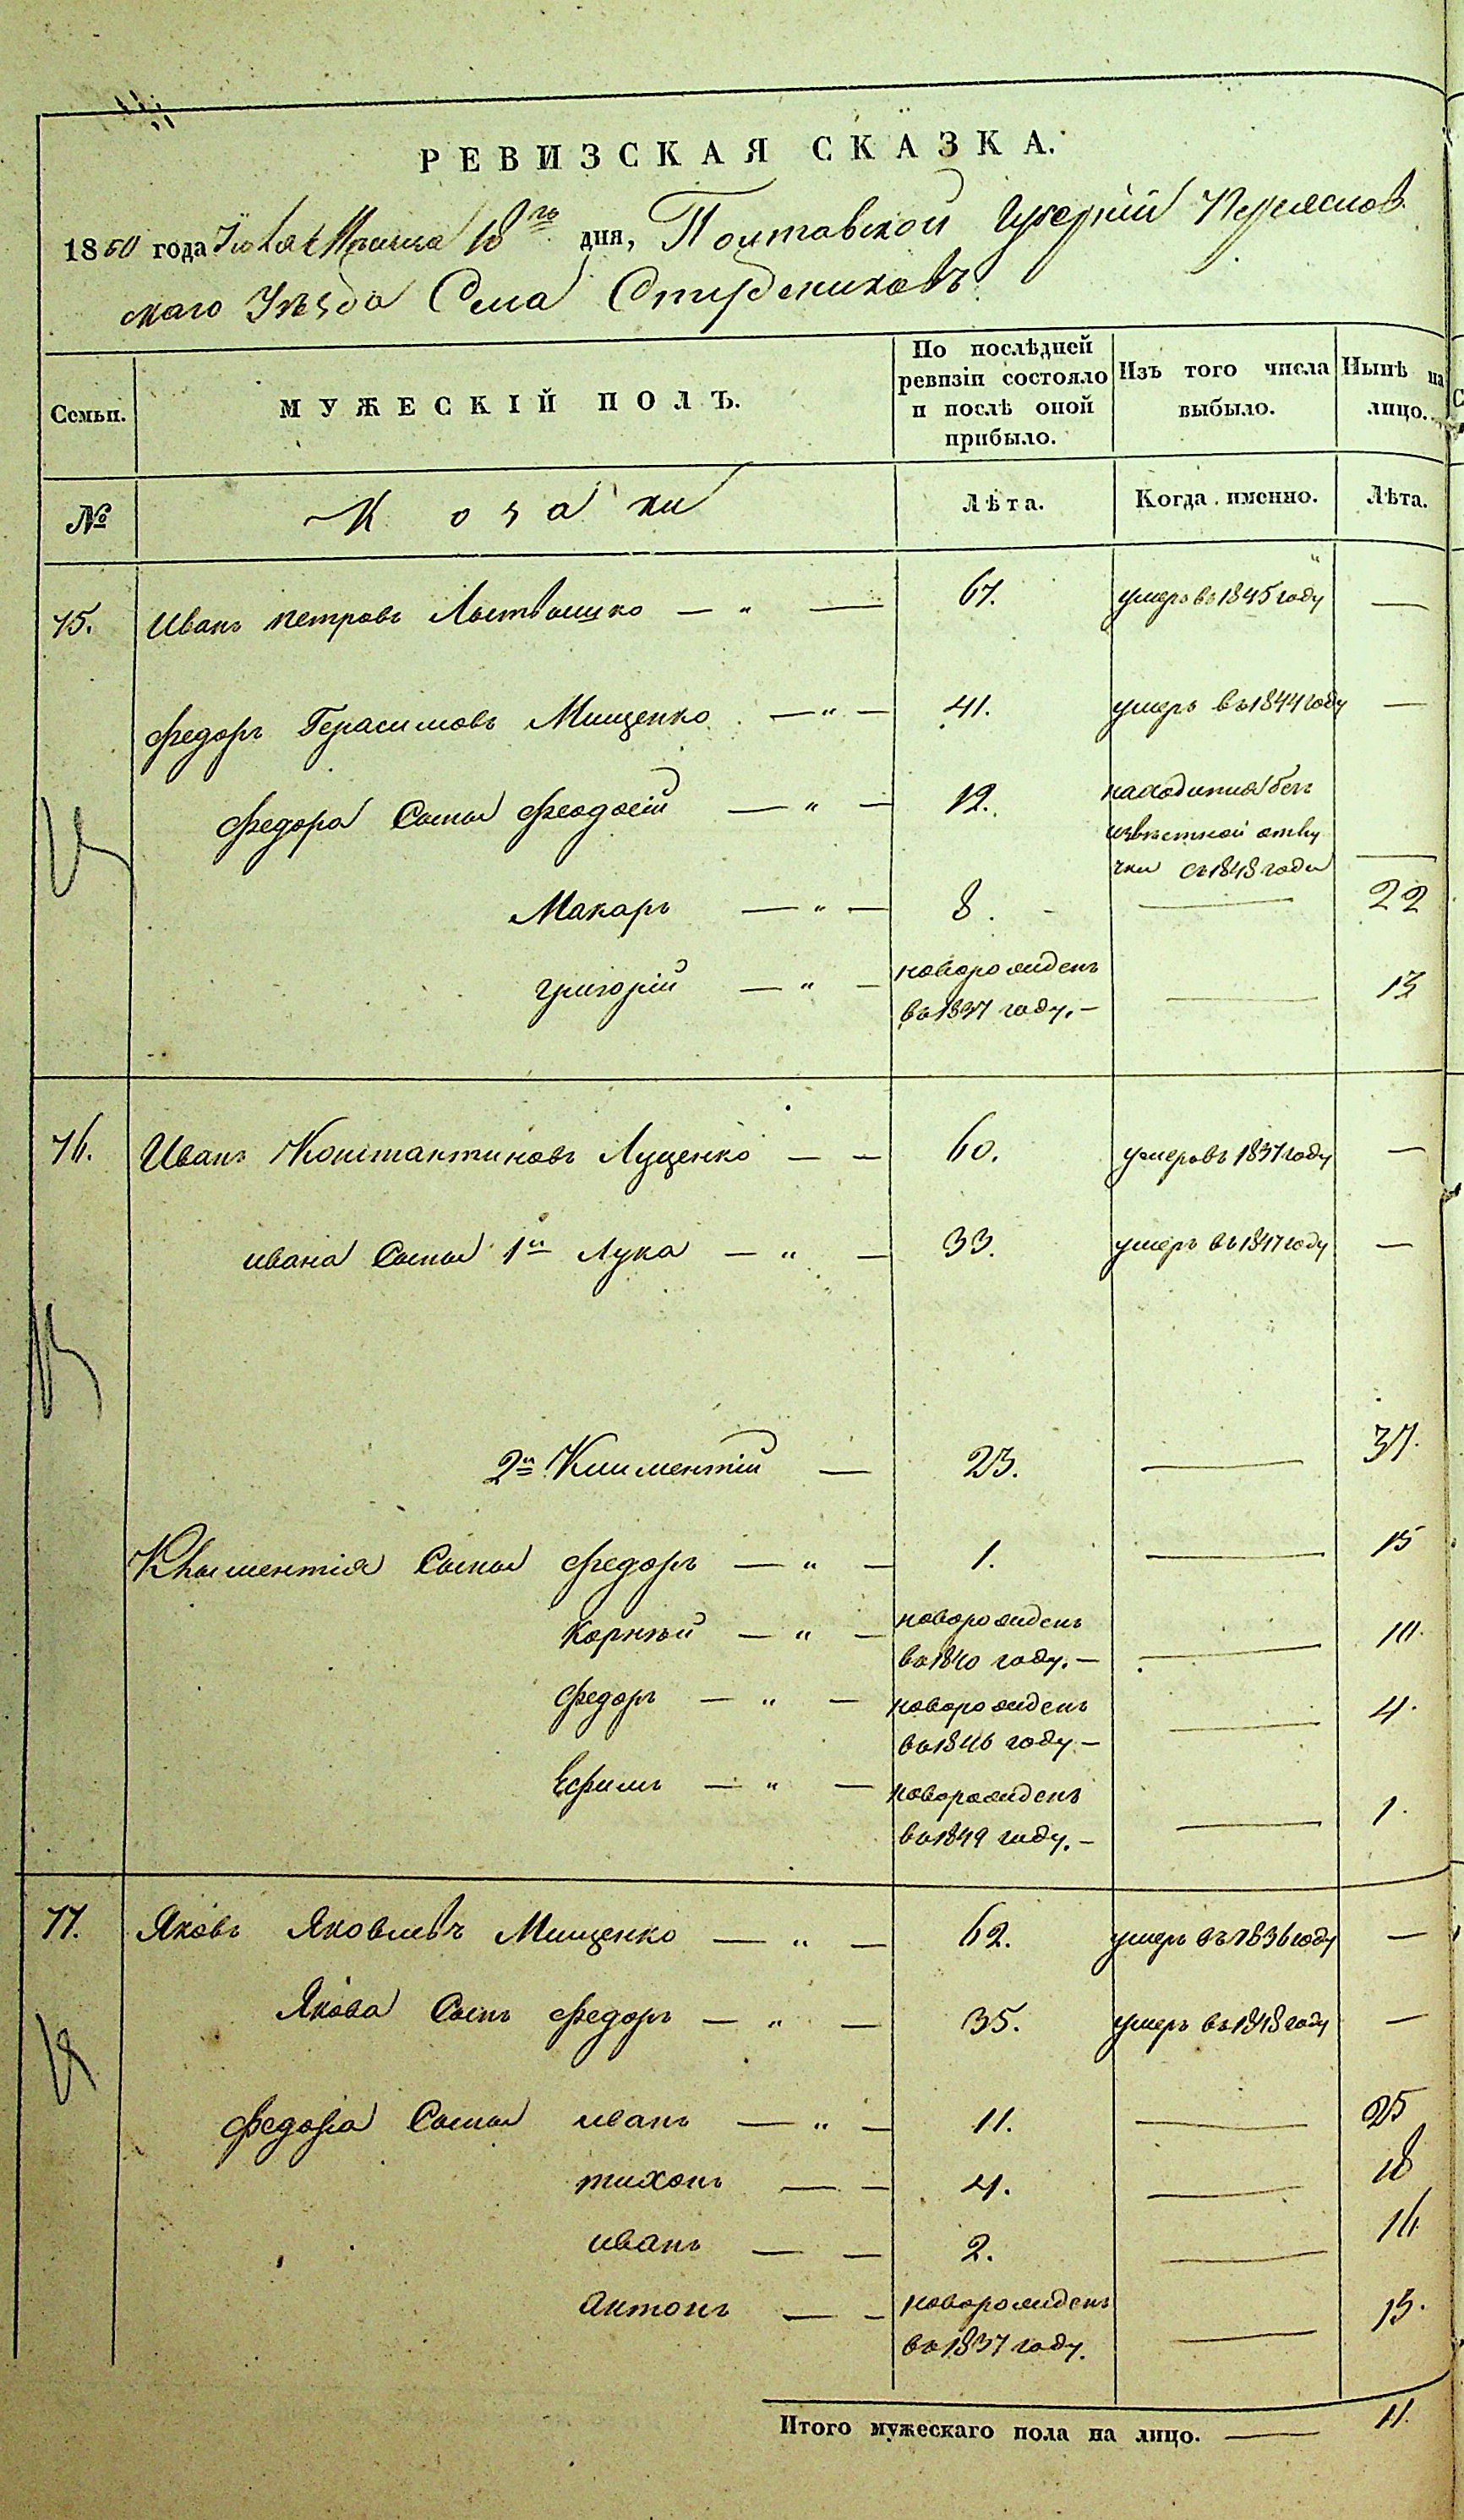 РЕВИЗСКАЯ СКАЗКА.
1850 года дня, Полтавской Губерніи Переяслов
скаго Уѣзда Села Студениковъ
Семьи. МУЖЕСКІЙ ПОЛЪ. По послѣдней ревизіи состояло и послѣ оной прибыло. Изъ того числа выбыло. Нынѣ на лицо.
№ Козаки Лѣта. Когда именно. Лѣта.
75. Иванъ петровъ 67. умеръ въ 1845 году —
федоръ Герасимовъ Мищенко — „ — 41. умеръ въ 1844 году —
федора Сыны феодосій — „ — 12. находится безъ
извѣстной отлу
чки съ 1848 года —
Макаръ — „ — 8. — 22
григорій — „ — новорожденъ — 13
въ 1837 году. —
76. Иванъ Константиновъ Луценко — — 60. умеръ въ 1837 году —
ивана Сыны 1й Лука — „ — 33. умеръ въ 1847 году —
2й Климентій — 23. — 37.
Климентія Сыны федоръ — „ — 1. — 15
Корнѣй — „ — новорожденъ — 10.
въ 1840 году. —
федоръ — „ — новорожденъ — 4.
въ 1846 году —
Ефимъ — „ — новорожденъ — 1.
въ 1849 году. —
77. Яковъ Яковлевъ Мищенко — „ — 62. умеръ въ 1836 году —
Якова Сынъ федоръ — „ — 35. умеръ въ 1848 году —
федора Сыны иванъ — „ — 11. — 25
тихонъ — — 4. — 18
иванъ — — 2. — 16
антонъ — — новорожденъ — 13.
въ 1837 году.
Итого мужескаго пола на лицо. — 11.